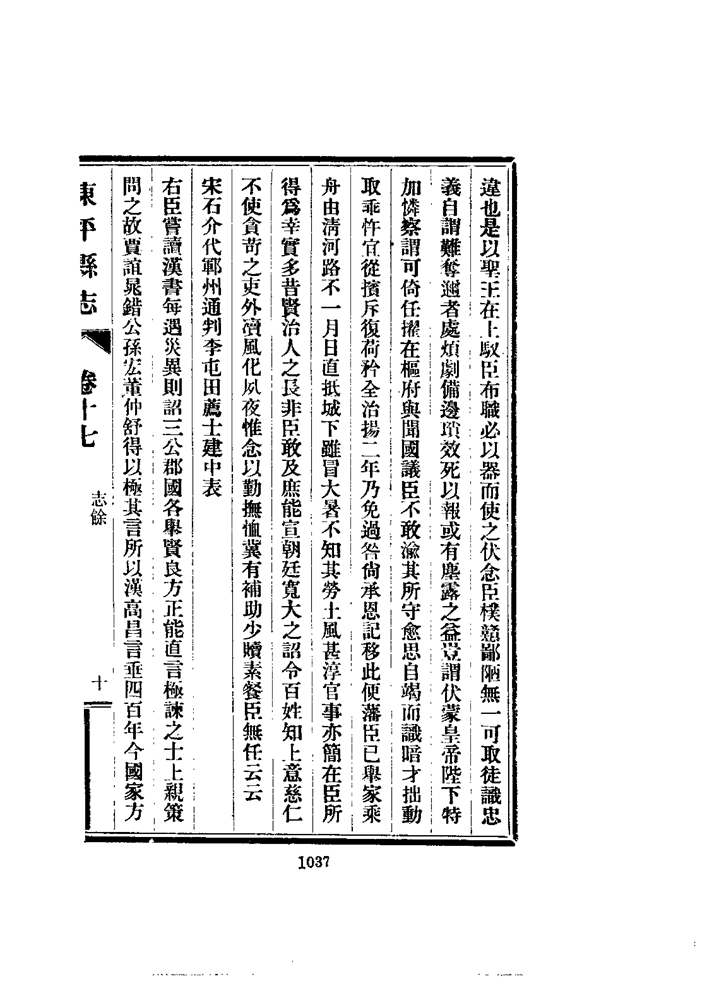 違也是以聖王在上馭臣布職必以器而使之伏念臣樸戇鄙陋無一可取徒識忠
義自謂難奪邇者處煩劇備邊瑣效死以報或有塵露之益豈謂伏蒙皇帝陛下特
加憐察謂可倚任擢在樞府與聞國議臣不敢渝其所守愈思自竭而識暗才拙動
取乖忤宜從擯斥復荷矜全治揚二年乃免過咎尙承恩記移此便藩臣已舉家乘
舟由淸河路不一月日直抵城下雖冒大暑不知其勞土風甚淳官事亦簡在臣所
得爲幸實多昔賢治人之長非臣敢及庶能宣朝廷寬大之詔令百姓知上意慈仁
不使貪苛之吏外瀆風化夙夜惟念以勤撫恤冀有補助少贖素餐臣無任云云
宋石介代鄆州通判李屯田薦士建中表
右臣嘗讀漢書每遇災異則詔三公郡國各舉賢良方正能直言極諫之士上親策
問之故賈誼晁錯公孫宏董仲舒得以極其言所以漢高昌言垂四百年今國家方
東平縣志 卷十七 志餘 十
1037